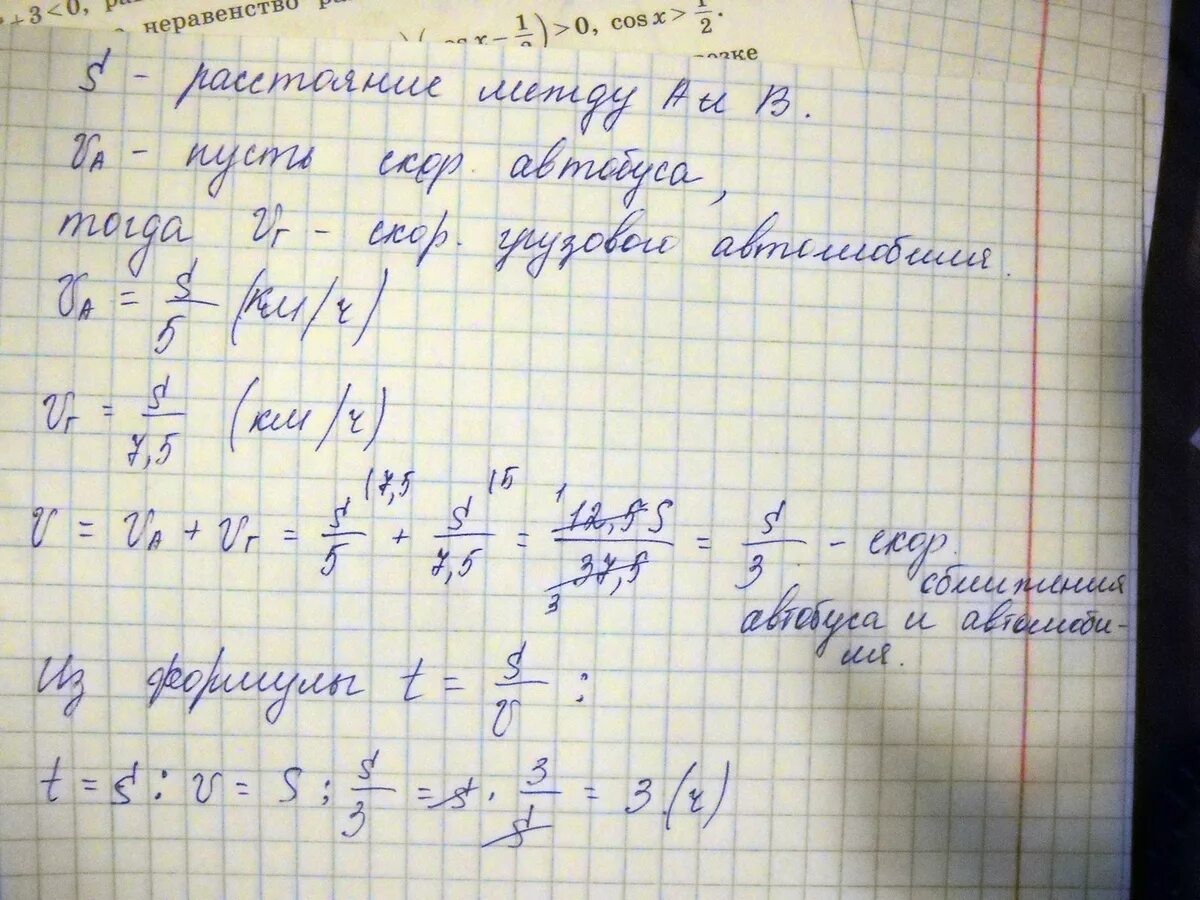 +3<0,
неравенство
x-1/2)>0, cos x>1/2.
S - расстояние между А и В.
VА - пусть скор. автобуса,
тогда Vг - скор. грузового автомобиля.
VА = S/5 (км/ч)
Vг = S/7,5 (км/ч)
V = VА + Vг = S/5 (7,5 + S/7,5 (5 = 12,5S/37,5 = S/3 - скор.
1
3
сближения
автобуса и автомоби-
ля.
Из формулы t = S/V :
t = S : V = S : S/3 = S · 3/S = 3 (ч)